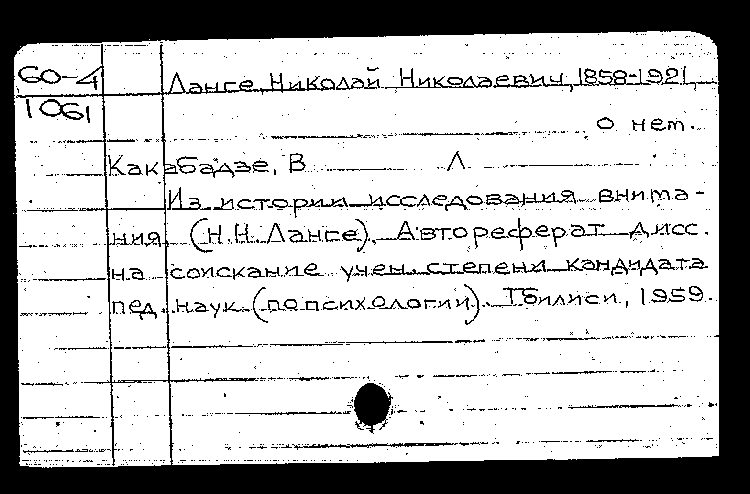 60-4
1061
Ланге, Николай Николаевич, 1858-1921,
о нем.
Какабадзе, В Л
Из истории исследования внима-
ния. (Н.Н. Ланге). Автореферат дисс.
на соискание учен. степени кандидата
пед. наук (по психологии). Тбилиси, 1959.